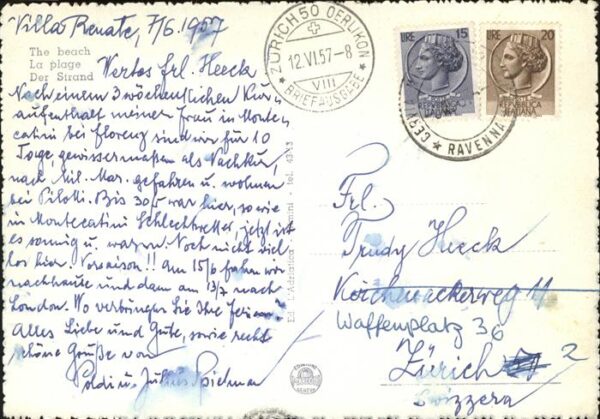 Villa Renate, 7/6.1957
The beach
La plage
Der Strand
Wertes Frl. Heeck
Nach einem 3 wöchentlichen Kur-
aufenthalt meiner Frau in Monte-
catini bei Florenz sind wir für 10
Tage, gewissermaßen als Nachkur,
nach Mil. Mar. gefahren u. wohnen
bei Pilotti. Bis 30/5 war hier, so wie
in Montecatini Schlechtwetter, jetzt ist
es sonnig u. warm. Noch nicht viel
los hier. Vorsaison!! Am 15/6 fahren wir
nachhause und dann am 13/7 nach
London. Wo verbringen Sie Ihre Ferien?
Alles Liebe und Gute, sowie recht
schöne Grüße von
Poldi u. Julius
ZÜRICH 50 OERLIKON
12.VI.57-8
VIII
BRIEFAUSGABE
LIRE 15
REPUBBLICA
ITALIANA
LIRE 20
REPUBBLICA
ITALIANA
CERV
RAVENNA
Frl.
Trudy Heeck
Kirchenackerweg 11
Waffenplatz 36
Zürich 2
Svizzera